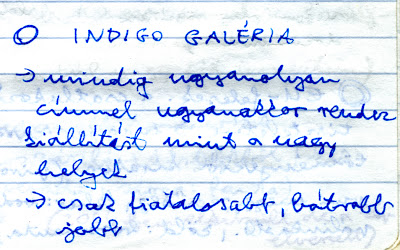 O INDIGO GALÉRIA
→ mindig ugyanolyan
címmel ugyanakkor rendez
kiállítást mint a nagy
helyek
→ csak fiatalosabb, bátrabb
jobb